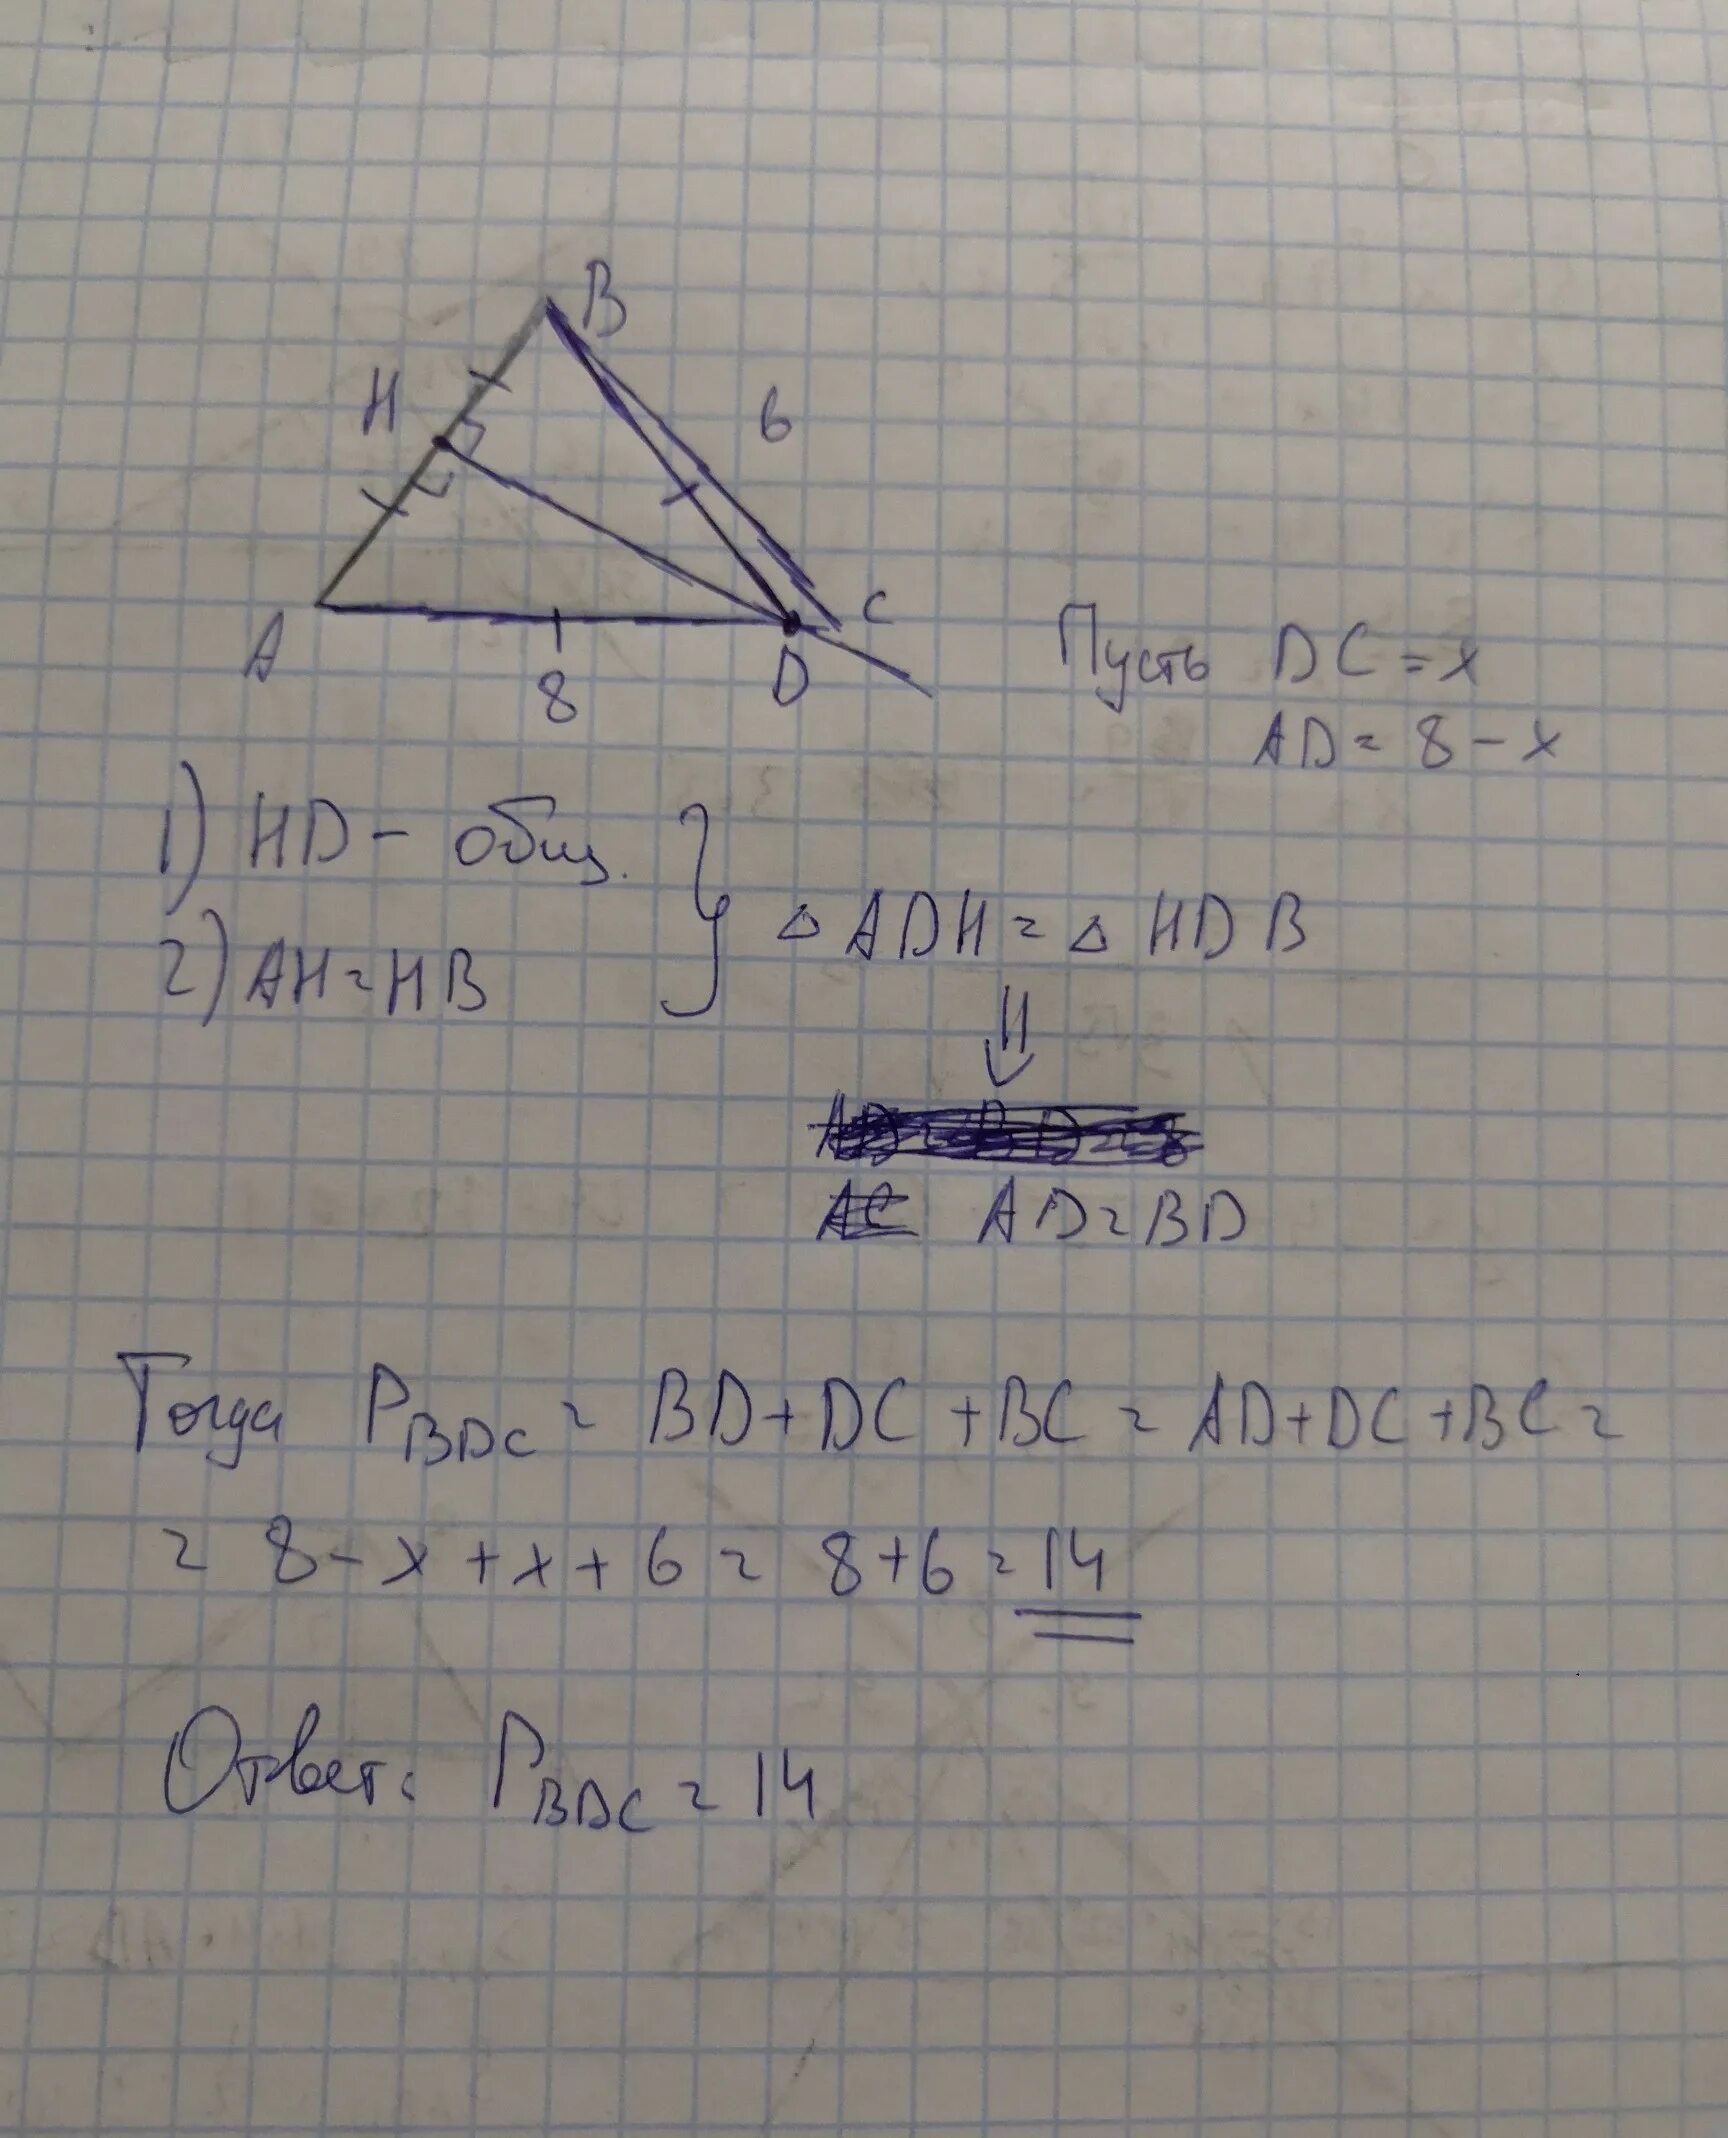 B
H
6
C
A
8
D
Пусть DC = x
AD = 8 - x
1) HD - общ.
2) AH = HB
△ ADH = △ HDB
⇓
AD = BD = 8
AC AD = BD
Тогда P BDC = BD + DC + BC = AD + DC + BC =
= 8 - x + x + 6 = 8 + 6 = 14
Ответ: P BDC = 14